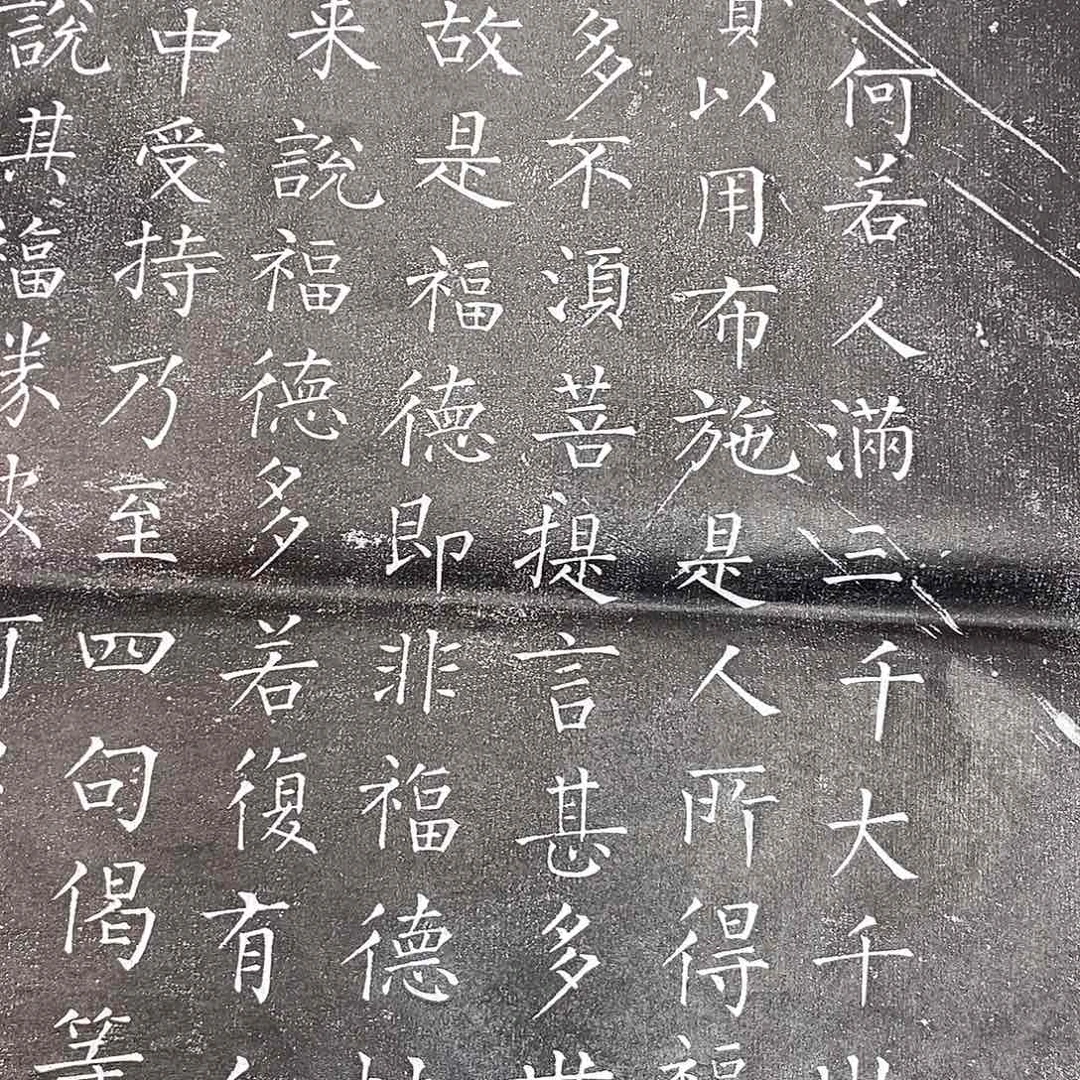 何若人滿三千大千
以用布施是人所得福
多不湏菩提言甚多
故是福德即非福德
来說福德多若復有
中受持乃至四句偈等
說其福